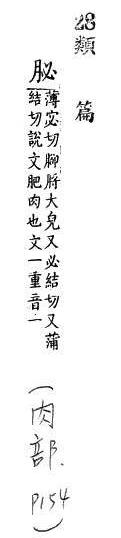 28類篇
胇
薄宓切胇肸大皃又必結切又蒲
結切說文肥肉也文一重音一
(肉部.
P154)